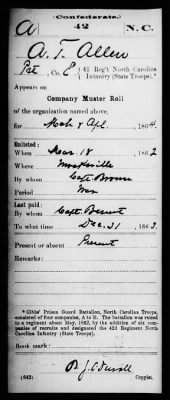 (Confederate.)
A 42 N.C.
A. T. Allen
Pvt, Co. E, 42 Reg't North Carolina
Infantry (State Troops).*
Appears on
Company Muster Roll
of the organization named above,
for Mch & Apl, 1864.
Enlisted:
When Mar. 18, 1862
Where Mocksville
By whom Capt. Brown
Period War
Last paid:
By whom Capt.
To what time Dec. 31, 1863.
Present or absent Present
Remarks:
*Gibbs' Prison Guard Battalion, North Carolina Troops,
consisted of four companies, A to D. The battalion was raised
to a regiment about May, 1862, by the addition of six com-
panies of recruits and designated the 42d Regiment North
Carolina Infantry (State Troops).
Book mark:
(642) Copyist.